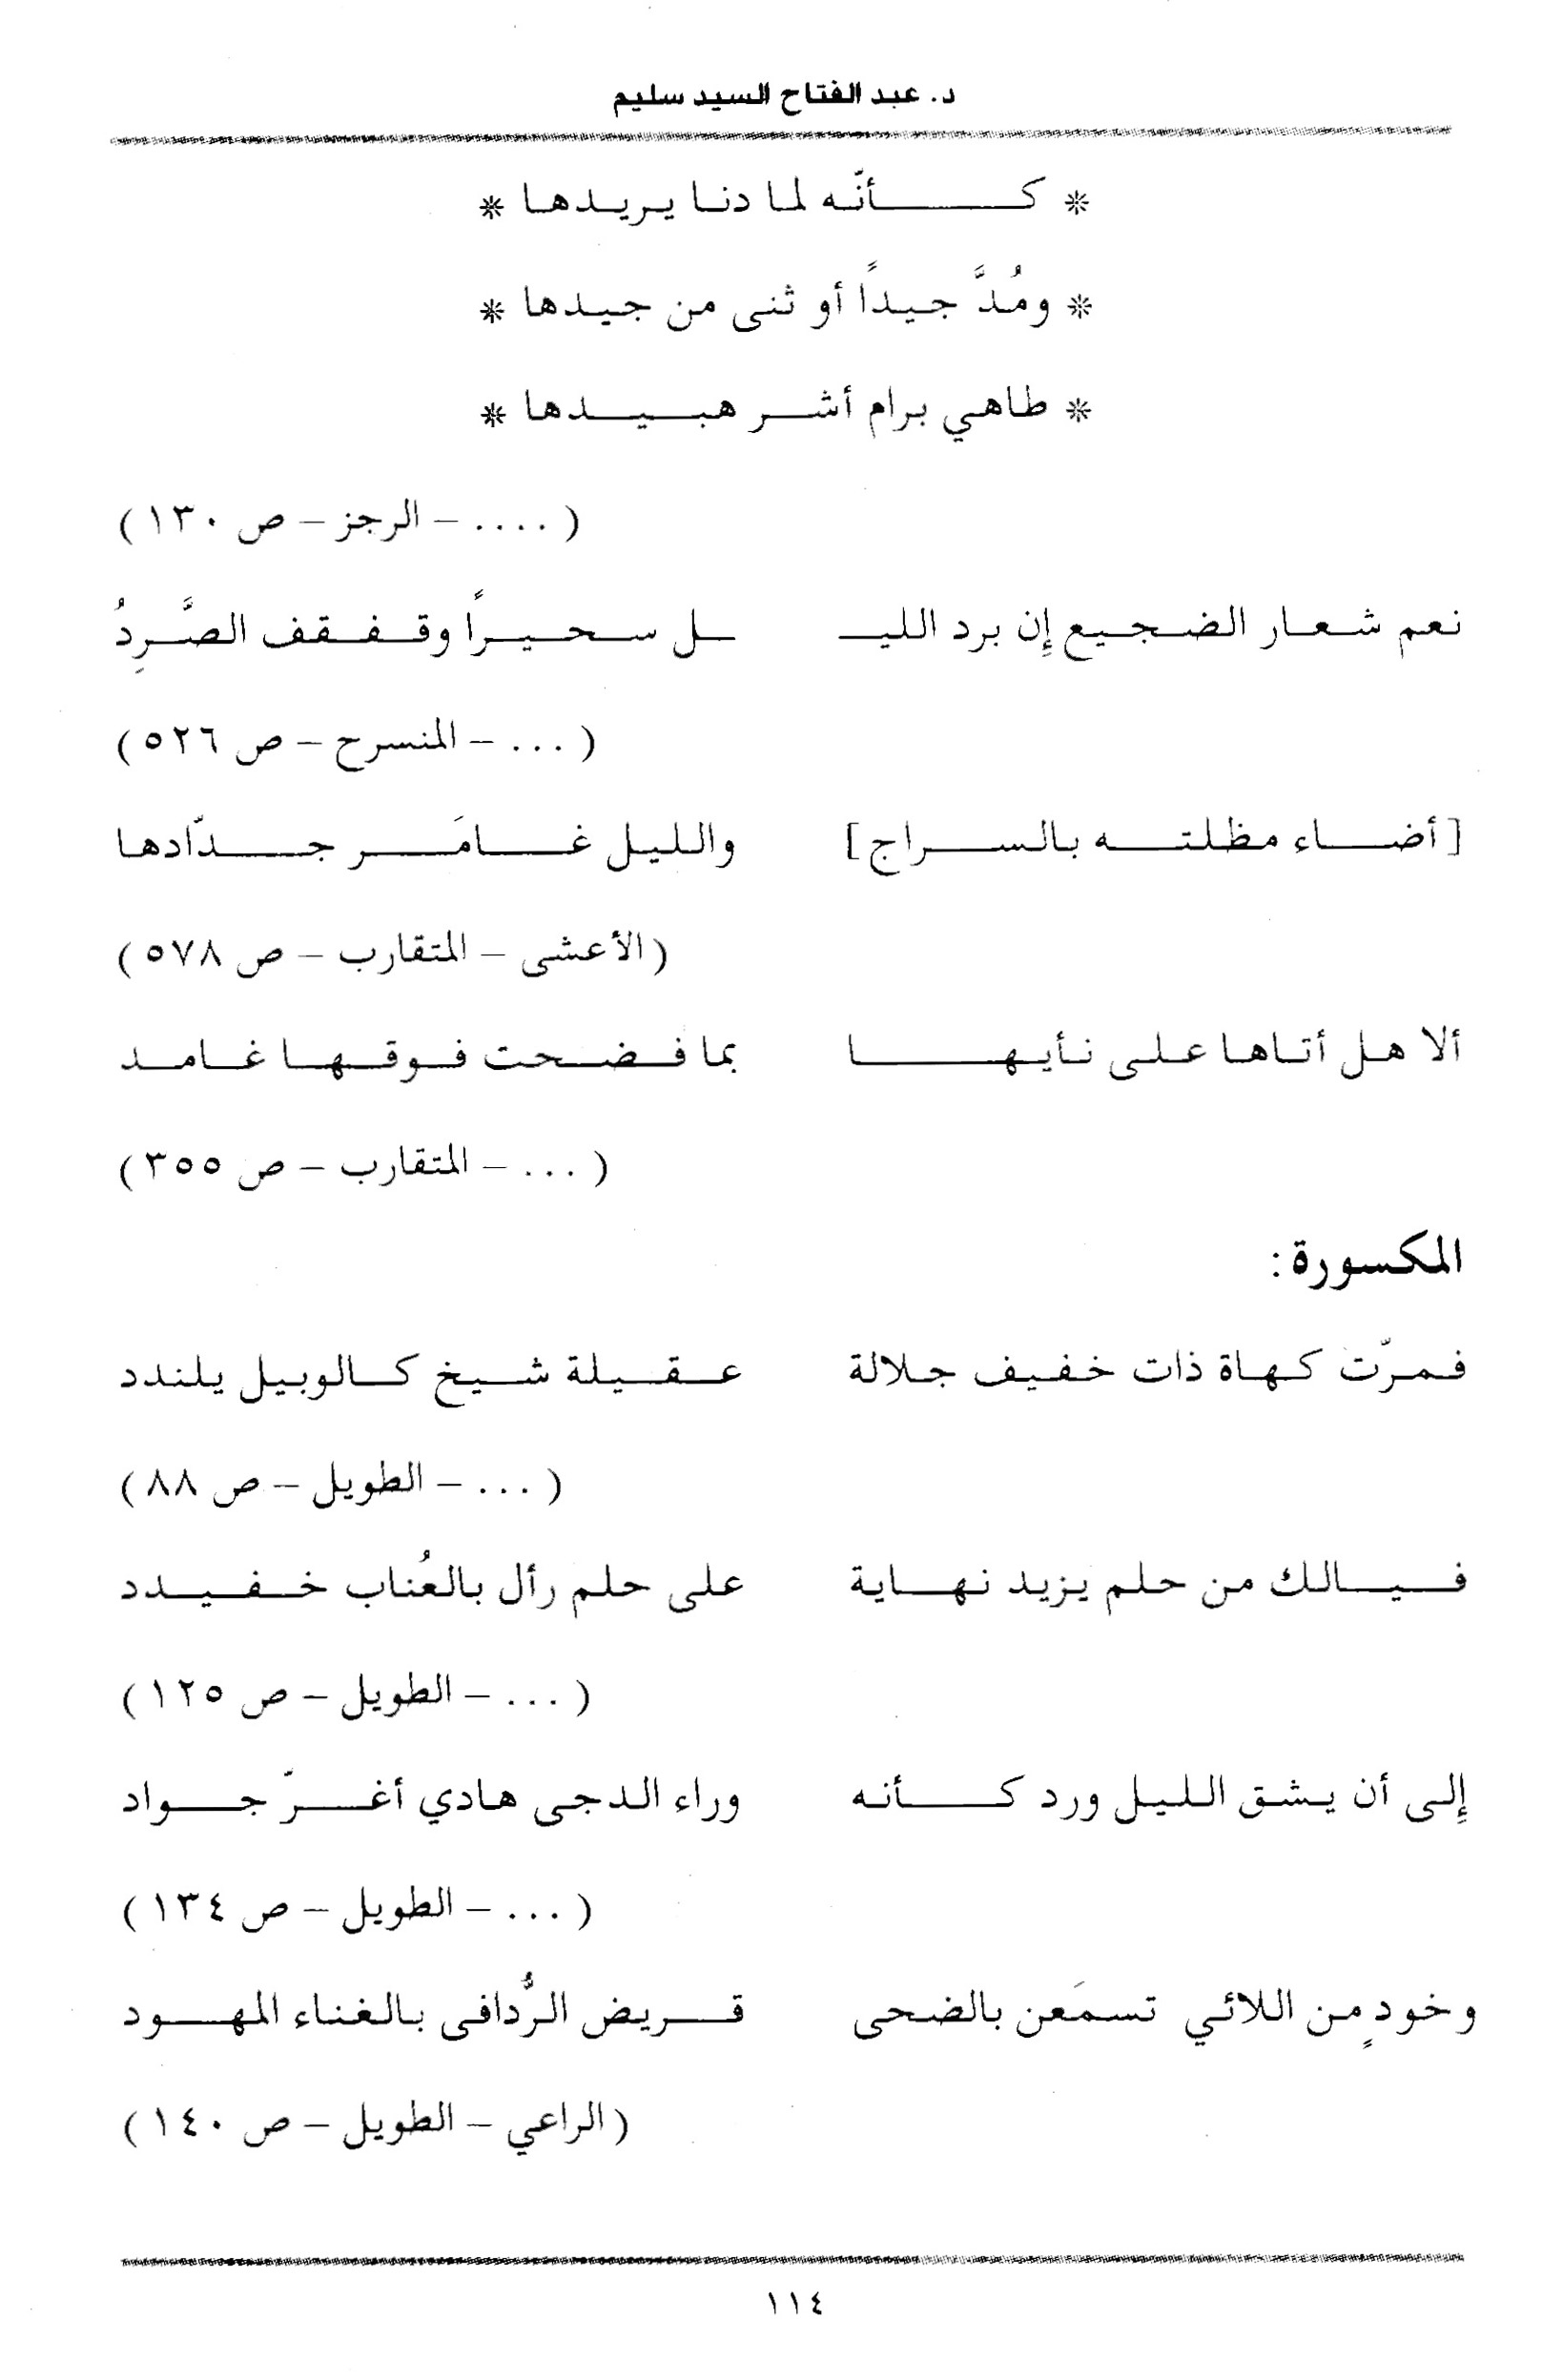 د. عبد الفتاح السيد سليم
* كـــأنّه لما دنا يريدها *
* ومُدَّ جيداً أو ثنى من جيدها *
* طاهي برام أشر هبيدها *
( .... – الرجز – ص ١٣٠ )
نعم شعار الضجيع إن برد الليـ ـل سحيراً وقفقف الصَّرِدُ
( ... – المنسرح – ص ٥٢٦ )
[ أضاء مظلته بالسراج ] والليل غامَر جدّادها
( الأعشى – المتقارب – ص ٥٧٨ )
ألا هل أتاها على نأيها بما فضحت فوقها غامد
( ... – المتقارب – ص ٣٥٥ )
المكسورة:
فمرّت كهاة ذات خفيف جلالة عقيلة شيخ كالوبيل يلندد
( ... – الطويل – ص ٨٨ )
فيالك من حلم يزيد نهاية على حلم رأل بالعُناب خفيدد
( ... – الطويل – ص ١٢٥ )
إلى أن يشق الليل ورد كأنه وراء الدجى هادي أغرّ جواد
( ... – الطويل – ص ١٣٤ )
وخودٍ من اللائي تسمَعن بالضحى قريض الرُّدافى بالغناء المهود
( الراعي – الطويل – ص ١٤٠ )
١١٤